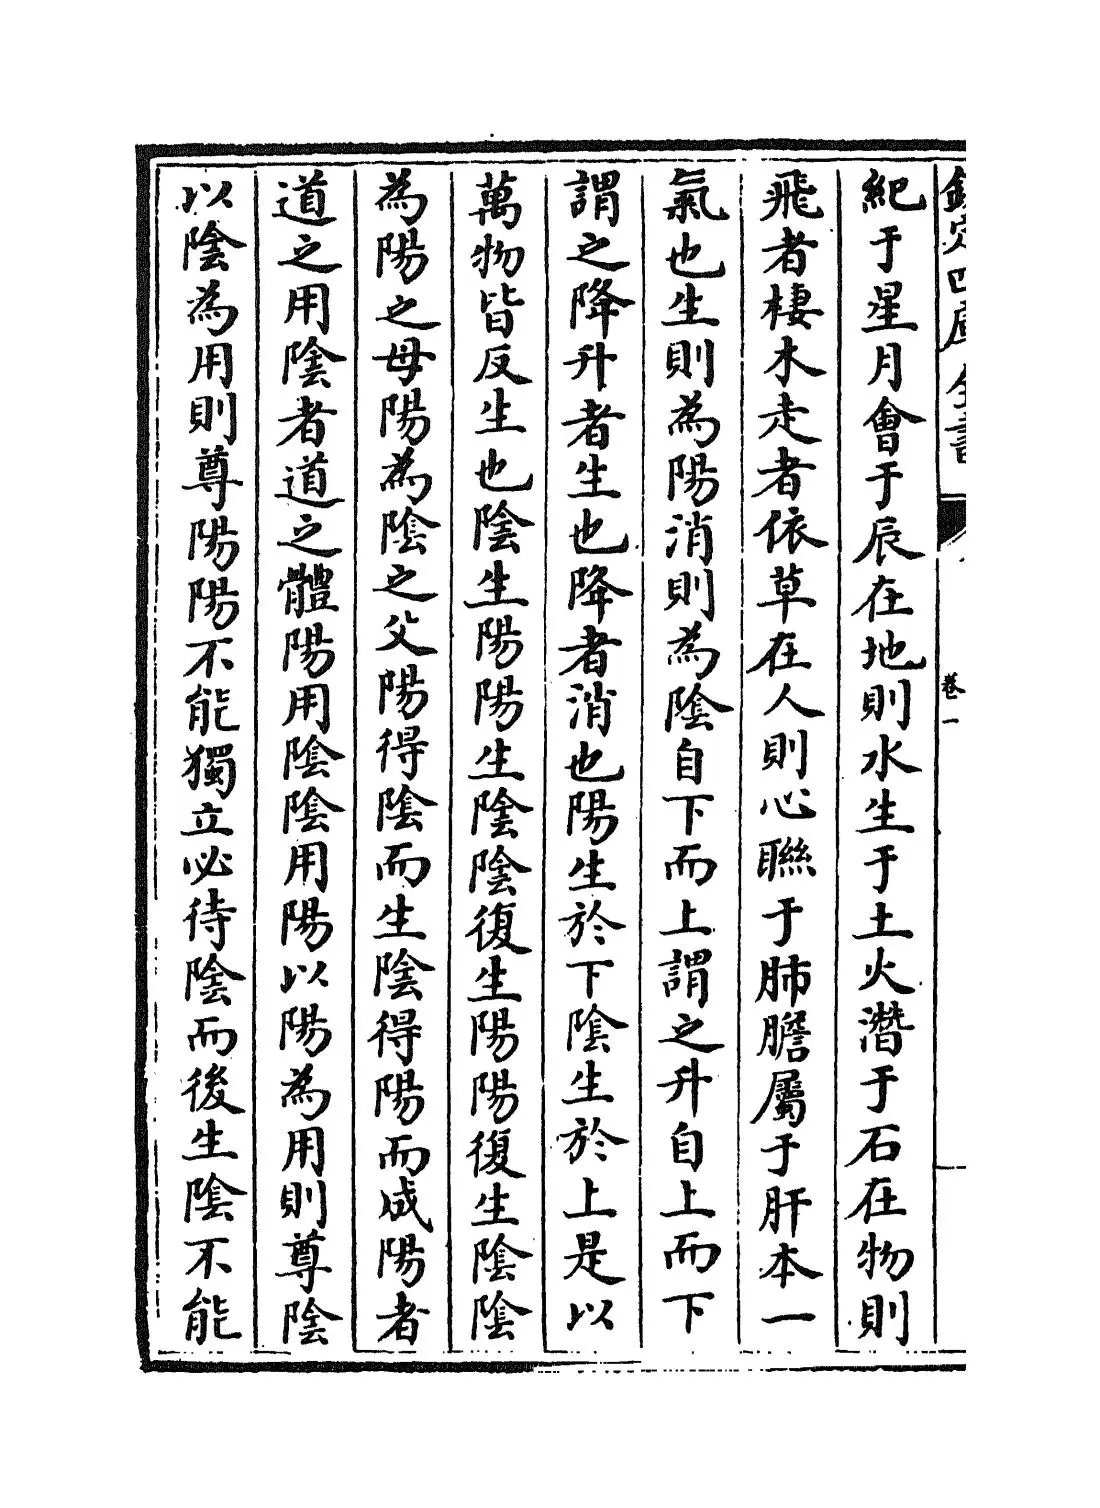 欽定四庫全書
卷一
紀于星月會于辰在地則水生于土火潛于石在物則
飛者棲木走者依草在人則心聯于肺膽屬于肝本一
氣也生則為陽消則為陰自下而上謂之升自上而下
謂之降升者生也降者消也陽生於下陰生於上是以
萬物皆反生也陰生陽陽生陰陰復生陽陽復生陰陰
為陽之母陽為陰之父陽得陰而生陰得陽而成陽者
道之用陰者道之體陽用陰陰用陽以陽為用則尊陰
以陰為用則尊陽陽不能獨立必待陰而後生陰不能